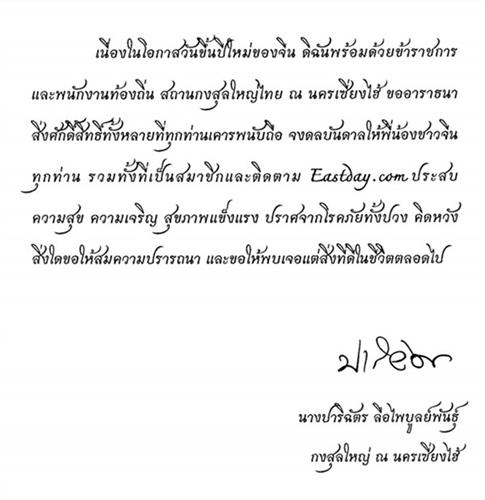 เนื่องในโอกาสวันขึ้นปีใหม่ของจีน ดิฉันพร้อมด้วยข้าราชการ
และพนักงานท้องถิ่น สถานกงสุลใหญ่ไทย ณ นครเซี่ยงไฮ้ ขออาราธนา
สิ่งศักดิ์สิทธิ์ทั้งหลายที่ทุกท่านเคารพนับถือ จงดลบันดาลให้พี่น้องชาวจีน
ทุกท่าน รวมทั้งที่เป็นสมาชิกและติดตาม Eastday.com ประสบ
ความสุข ความเจริญ สุขภาพแข็งแรง ปราศจากโรคภัยทั้งปวง คิดหวัง
สิ่งใดขอให้สมความปรารถนา และขอให้พบเจอแต่สิ่งที่ดีในชีวิตตลอดไป
นางปาริฉัตร ลือไพบูลย์พันธุ์
กงสุลใหญ่ ณ นครเซี่ยงไฮ้